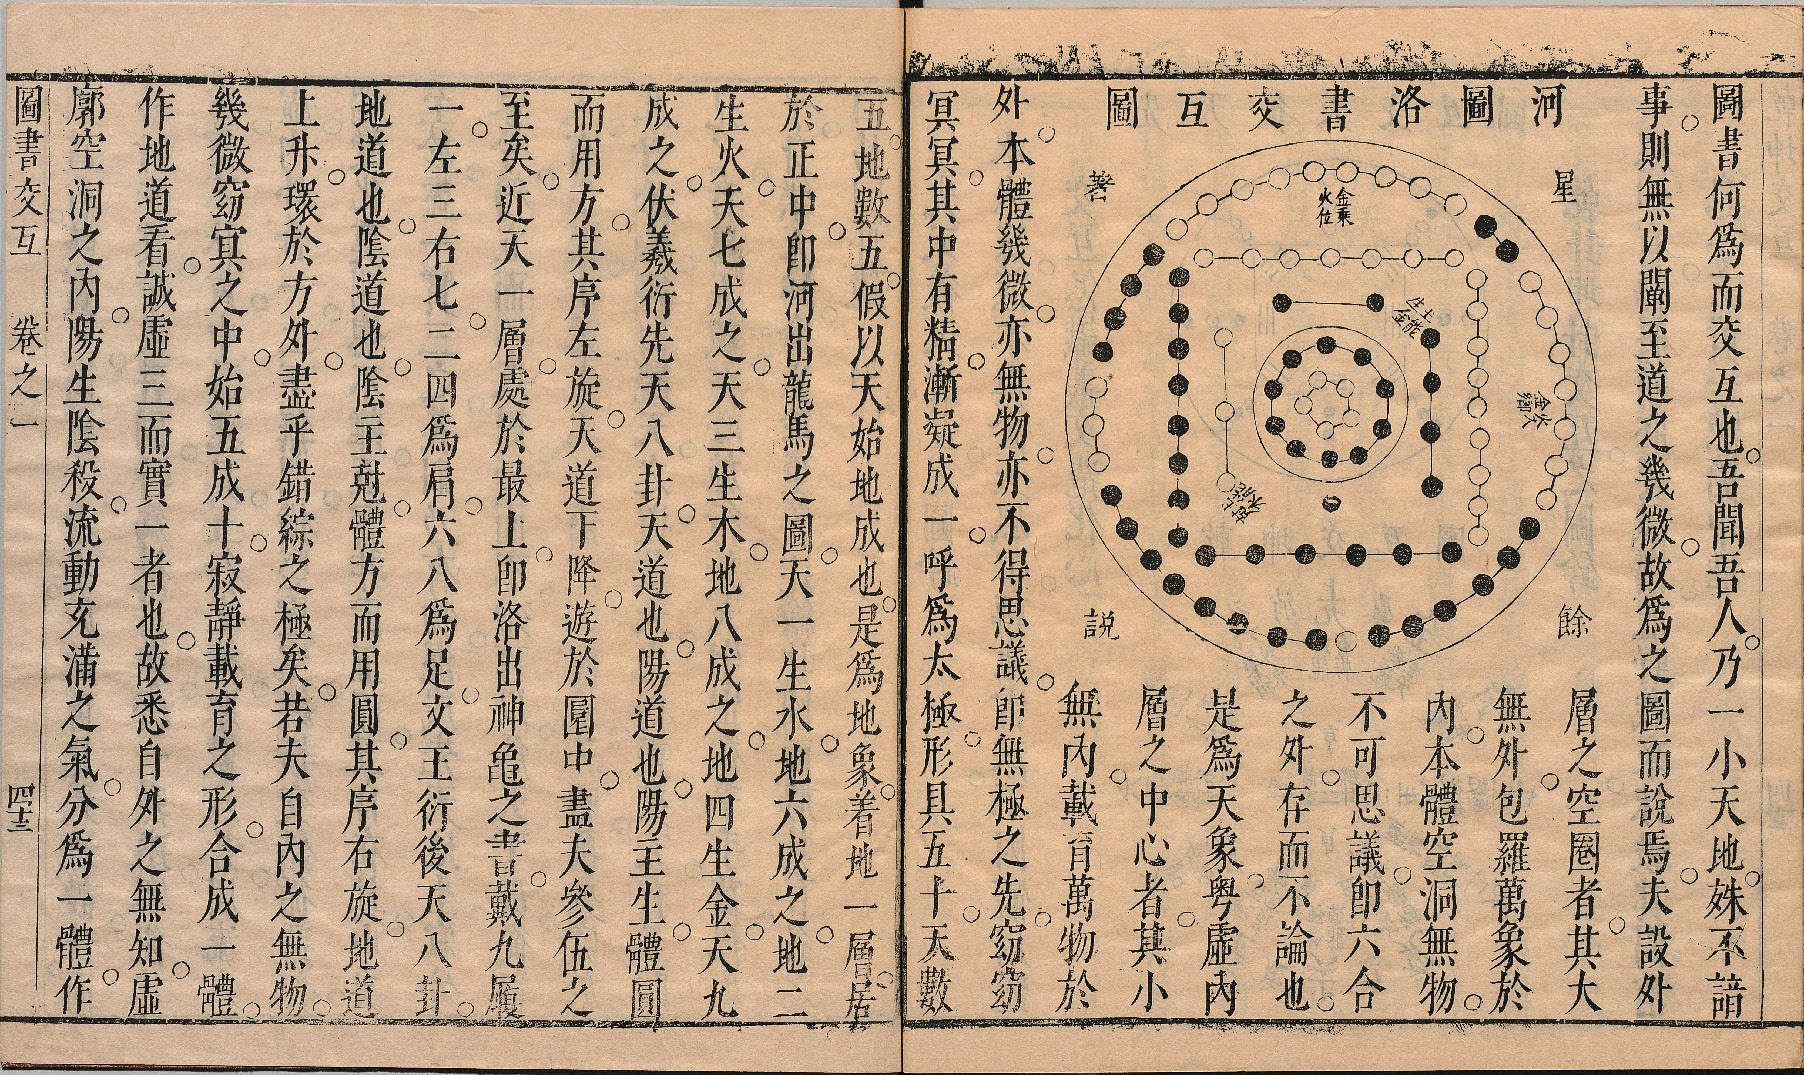 圖書何爲而交互也吾聞吾人乃一小天地姝不諳
事則無以闡至道之幾微故爲之圖而說焉夫設外
河圖洛書交互圖
星
著
餘
説
金乘火位
層之空圈者其大
無外包羅萬象於
內本體空洞無物
不可思議卽六合
之外存而不論也
是爲天象粵虛內
層之中心者其小
無內載育萬物於
外本體幾微亦無物亦不得思議卽無極之先窈窈
冥冥其中有精漸凝成一呼爲太極形具五十天數
五地數五假以天始地成也是爲地象着地一層居
於正中卽河出龍馬之圖天一生水地六成之地二
生火天七成之天三生木地八成之地四生金天九
成之伏羲衍先天八卦天道也陽道也陽主生體圓
而用方其序左旋天道下降遊於圜中盡夫參伍之
至矣近天一層處於最上卽洛出神龜之書戴九履
一左三右七二四爲肩六八爲足文王衍後天八卦
地道也陰道也陰主尅體方而用圓其序右旋地道
上升環於方外盡乎錯綜之極矣若夫自內之無物
幾微窈冥之中始五成十寂靜載育之形合成一體
作地道看誠虛三而實一者也故悉自外之無知虛
廓空洞之內陽生陰殺流動充滿之氣分爲一體作
圖書交互 卷之一 四十三